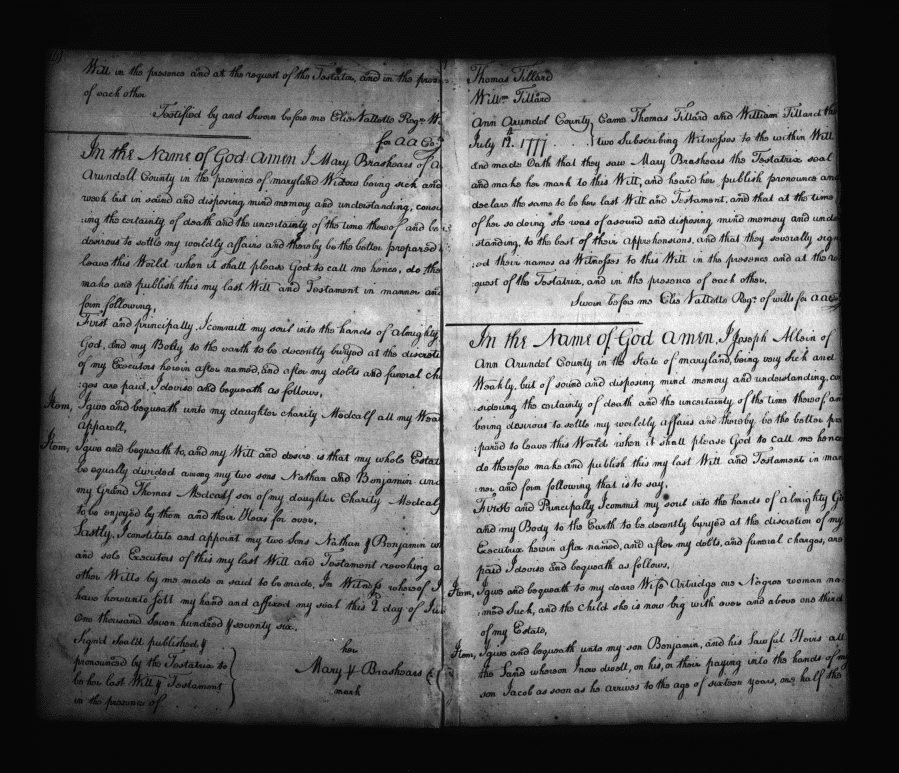 Will in the presence and at the request of the Testatrix, and in the
of each other
Testified by and Sworn before me Elie Vallette Regr.
for A A Co.
In the Name of God Amen I Mary Brashears of
Arundell County in the province of maryland Widow being sick and
weak but in sound and disposing mind memory and understanding,
:ing the certainty of death and the uncertainty of the time thereof and
desirous to settle my worldly affairs and thereby be the better prepared
leave this World when it shall please God to call me hence, do
make and publish this my last Will and Testament in manner and
form following,
First and principally, I commit my soul into the hands of Almighty
God, and my Body to the earth to be decently buryed at the
of my Executors herein after named, and after my debts and funeral
:ges are paid, I devise and bequeath as follows,
Item, I give and bequeath unto my daughter charity Medcalf all my
apparell,
Item, I give and bequeath to, and my Will and desire is that my whole
be equally divided among my two sons Nathan and Benjamin
my Grand Thomas Medcalf son of my daughter Charity
to be enjoyed by them and their Heirs for ever.
Lastly, I constitute and appoint my two Sons Nathan & Benjamin
and sole Executors of this my last Will and Testament revoking
other Wills by me made or said to be made, In Witness whereof I
have hereunto sett my hand and affixed my seal this 2 day of
one thousand Seven hundred & seventy six.
Sign'd Seal'd published &
pronounced by the Testatrix to
be her last Will & Testament
in the presence of
her
Mary Brashears
mark
Thomas Tillard
Willm. Tillard
Ann Arundel County, Came Thomas Tillard and William Tillard the
July 12th. 1777. two Subscribing Witnesses to the within Will
and made Oath that they saw Mary Brashears the Testatrix seal
and make her mark to this Will, and heard her publish pronounce and
declare the same to be her last Will and Testament, and that at the time
of her so doing she was of a sound and disposing mind memory and
:standing, to the best of their apprehensions, and that they severally
:ed their names as Witnesses to this Will in the presence and at the
:quest of the Testatrix, and in the presence of each other.
Sworn before me Elie Vallette Regr. of wills for A A
In the Name of God Amen, I Joseph Allein of
Ann Arundel County in the State of maryland, being very Sick and
Weakly, but of sound and disposing mind memory and understanding,
:sidering the certainty of death and the uncertainty of the time thereof
being desirous to settle my worldly affairs and thereby be the better
:pared to leave this World when it shall please God to call me hence
do therefore make and publish this my last Will and Testament in
:ner and form following that is to say,
First and Principally I commit my soul into the hands of Almighty
and my Body to the Earth to be decently buryed at the discretion of my
Executrix herein after named, and after my debts, and funeral charges, are
paid I devise and bequeath as follows,
Item, I give and bequeath to my deare Wife one Negroe woman
:med Suck, and the child she is now big with over and above one third
of my Estate,
Item, I give and bequeath unto my son Benjamin, and his Lawful Heirs all
the Land whereon I now dwell, on his, or their paying into the hands of my
son Jacob as soon as he arrives to the age of sixteen years, one half the